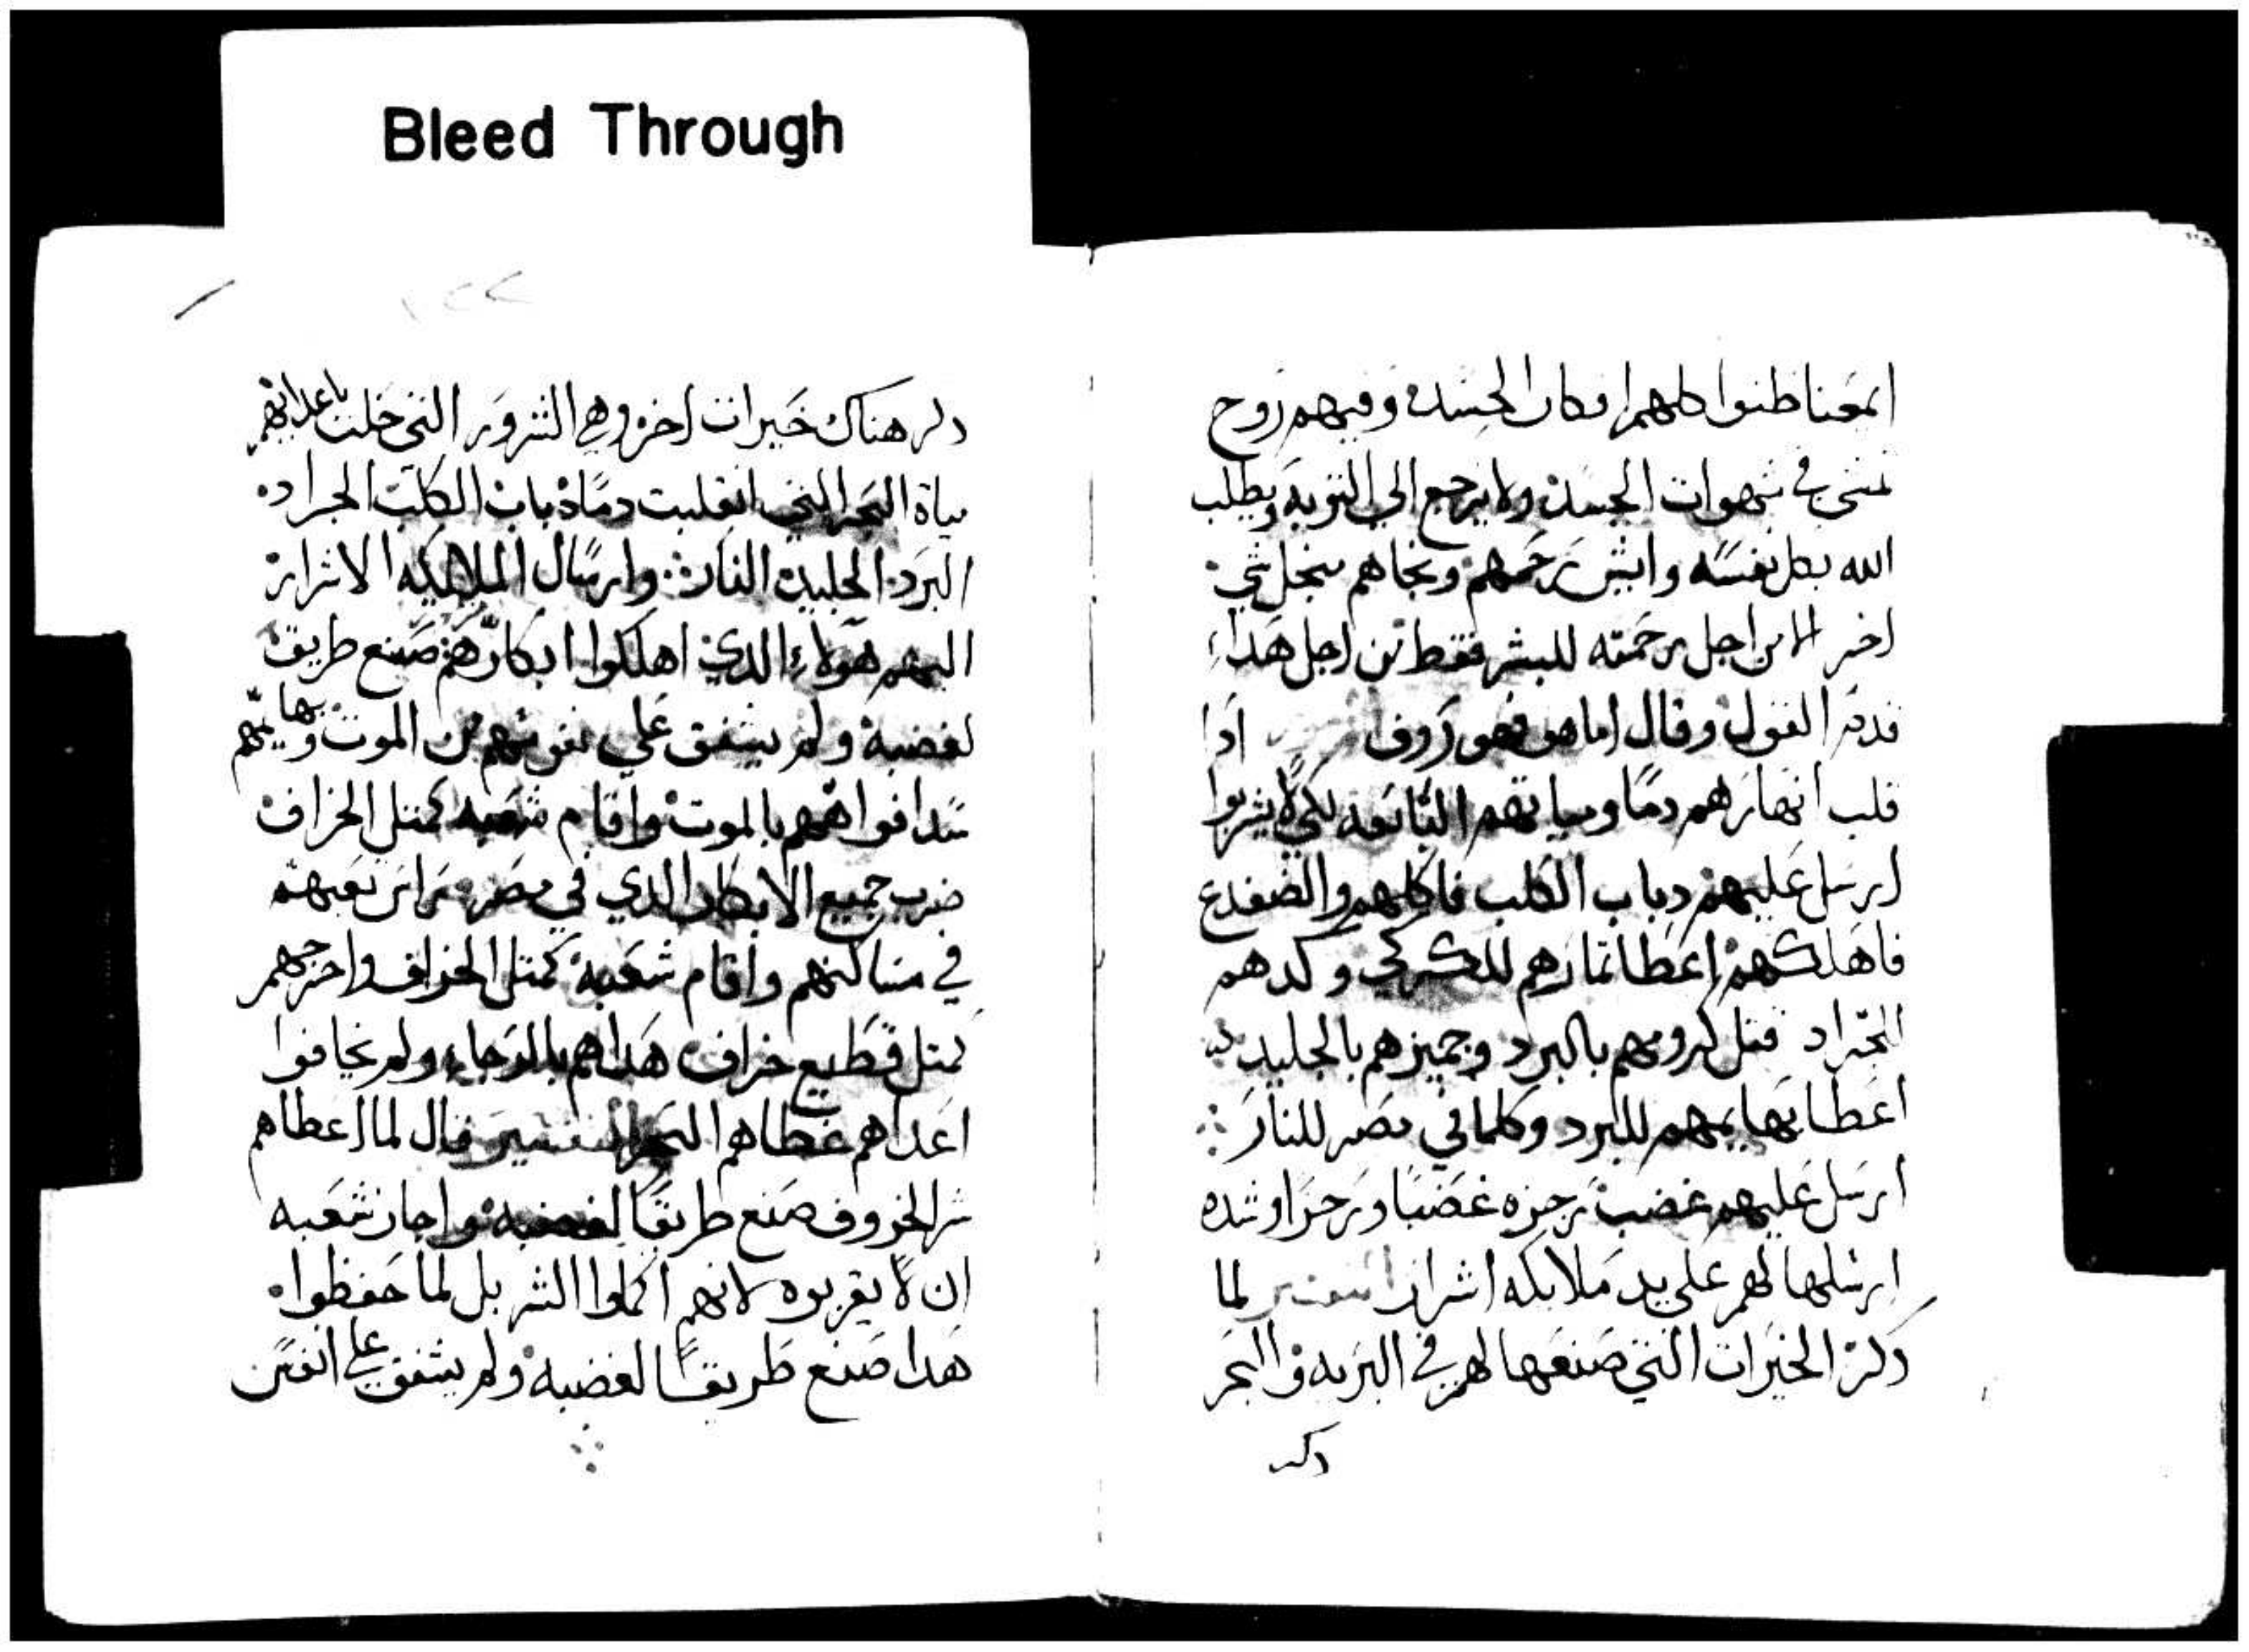 Bleed Through
المعنا ظنوا كلهم افكار الجسد وفيهم روح
تمشي في شهوات الجسد ولا يرجع الي التوبه ويطلب
الله بكل نفسه وايش رحمهم ونجاهم شي
اخر الا من اجل رحمته للبشر فقط من اجل هدا
قدم القول وقال اما هو فهو روف ادا
قلب انهارهم دمًا ومياتهم لكيلا يشربوا
ارسل عليهم دباب الكلب فاكلهم والضفدع
فاهلكهم اعطا تمارهم وكدهم
للجراد قتل كرومهم بالبرد وجميزهم بالجليد
اعطا بهايمهم للبرد وكلما في مصر للنار
ارسل عليهم غضب رجزه غضبًا ورجزا وشده
ارسلها لهم علي يد ملايكه اشرار لما
دكر الخيرات التي صنعها لهم في البريه والبحر
دكر
دكر هناك خيرات اخر وهي الشرور التي حلت باعدايهم
مياة البحر التي انقلبت دمًا دباب الكلب الجراد
البرد الجليد النار وارسال الملايكه الاشرار
اليهم هولاء الدي اهلكوا ابكارهم صنع طريق
لغضبه ولم يشفق علي نفوسهم من الموت وبهايمهم
بالموت واقام شعبه كمتل الخراف
ضرب جميع الابكار الدي في مصر راس تعبهم
في مساكنهم واقام شعبه كمتل الخراف واخرجهم
كمتل قطيع خراف هداهم بالرجاء ولم يخافوا
اعداهم غطاهم البحر قال لما اعطاهم
الخروف صنع طريقًا لغضبه واجاز شعبه
ان لا يقربوه لانهم اكملوا الشر بل لما حفظوا
هدا صنع طريقًا لغضبه ولم يشفق علي انفس